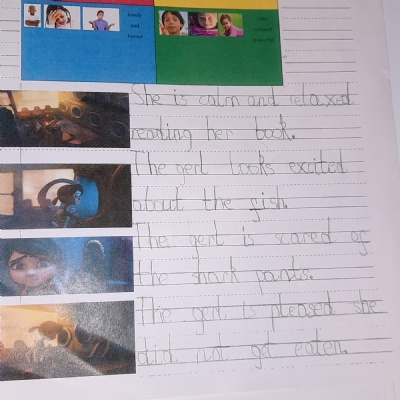 lonely
sad
bored
calm
relaxed
peaceful
She is calm and relaxed
reading her book.
The gerl looks excited
about the fish.
The gerl is scared of
the shark pants.
The gerl is pleased she
did not get eaten.